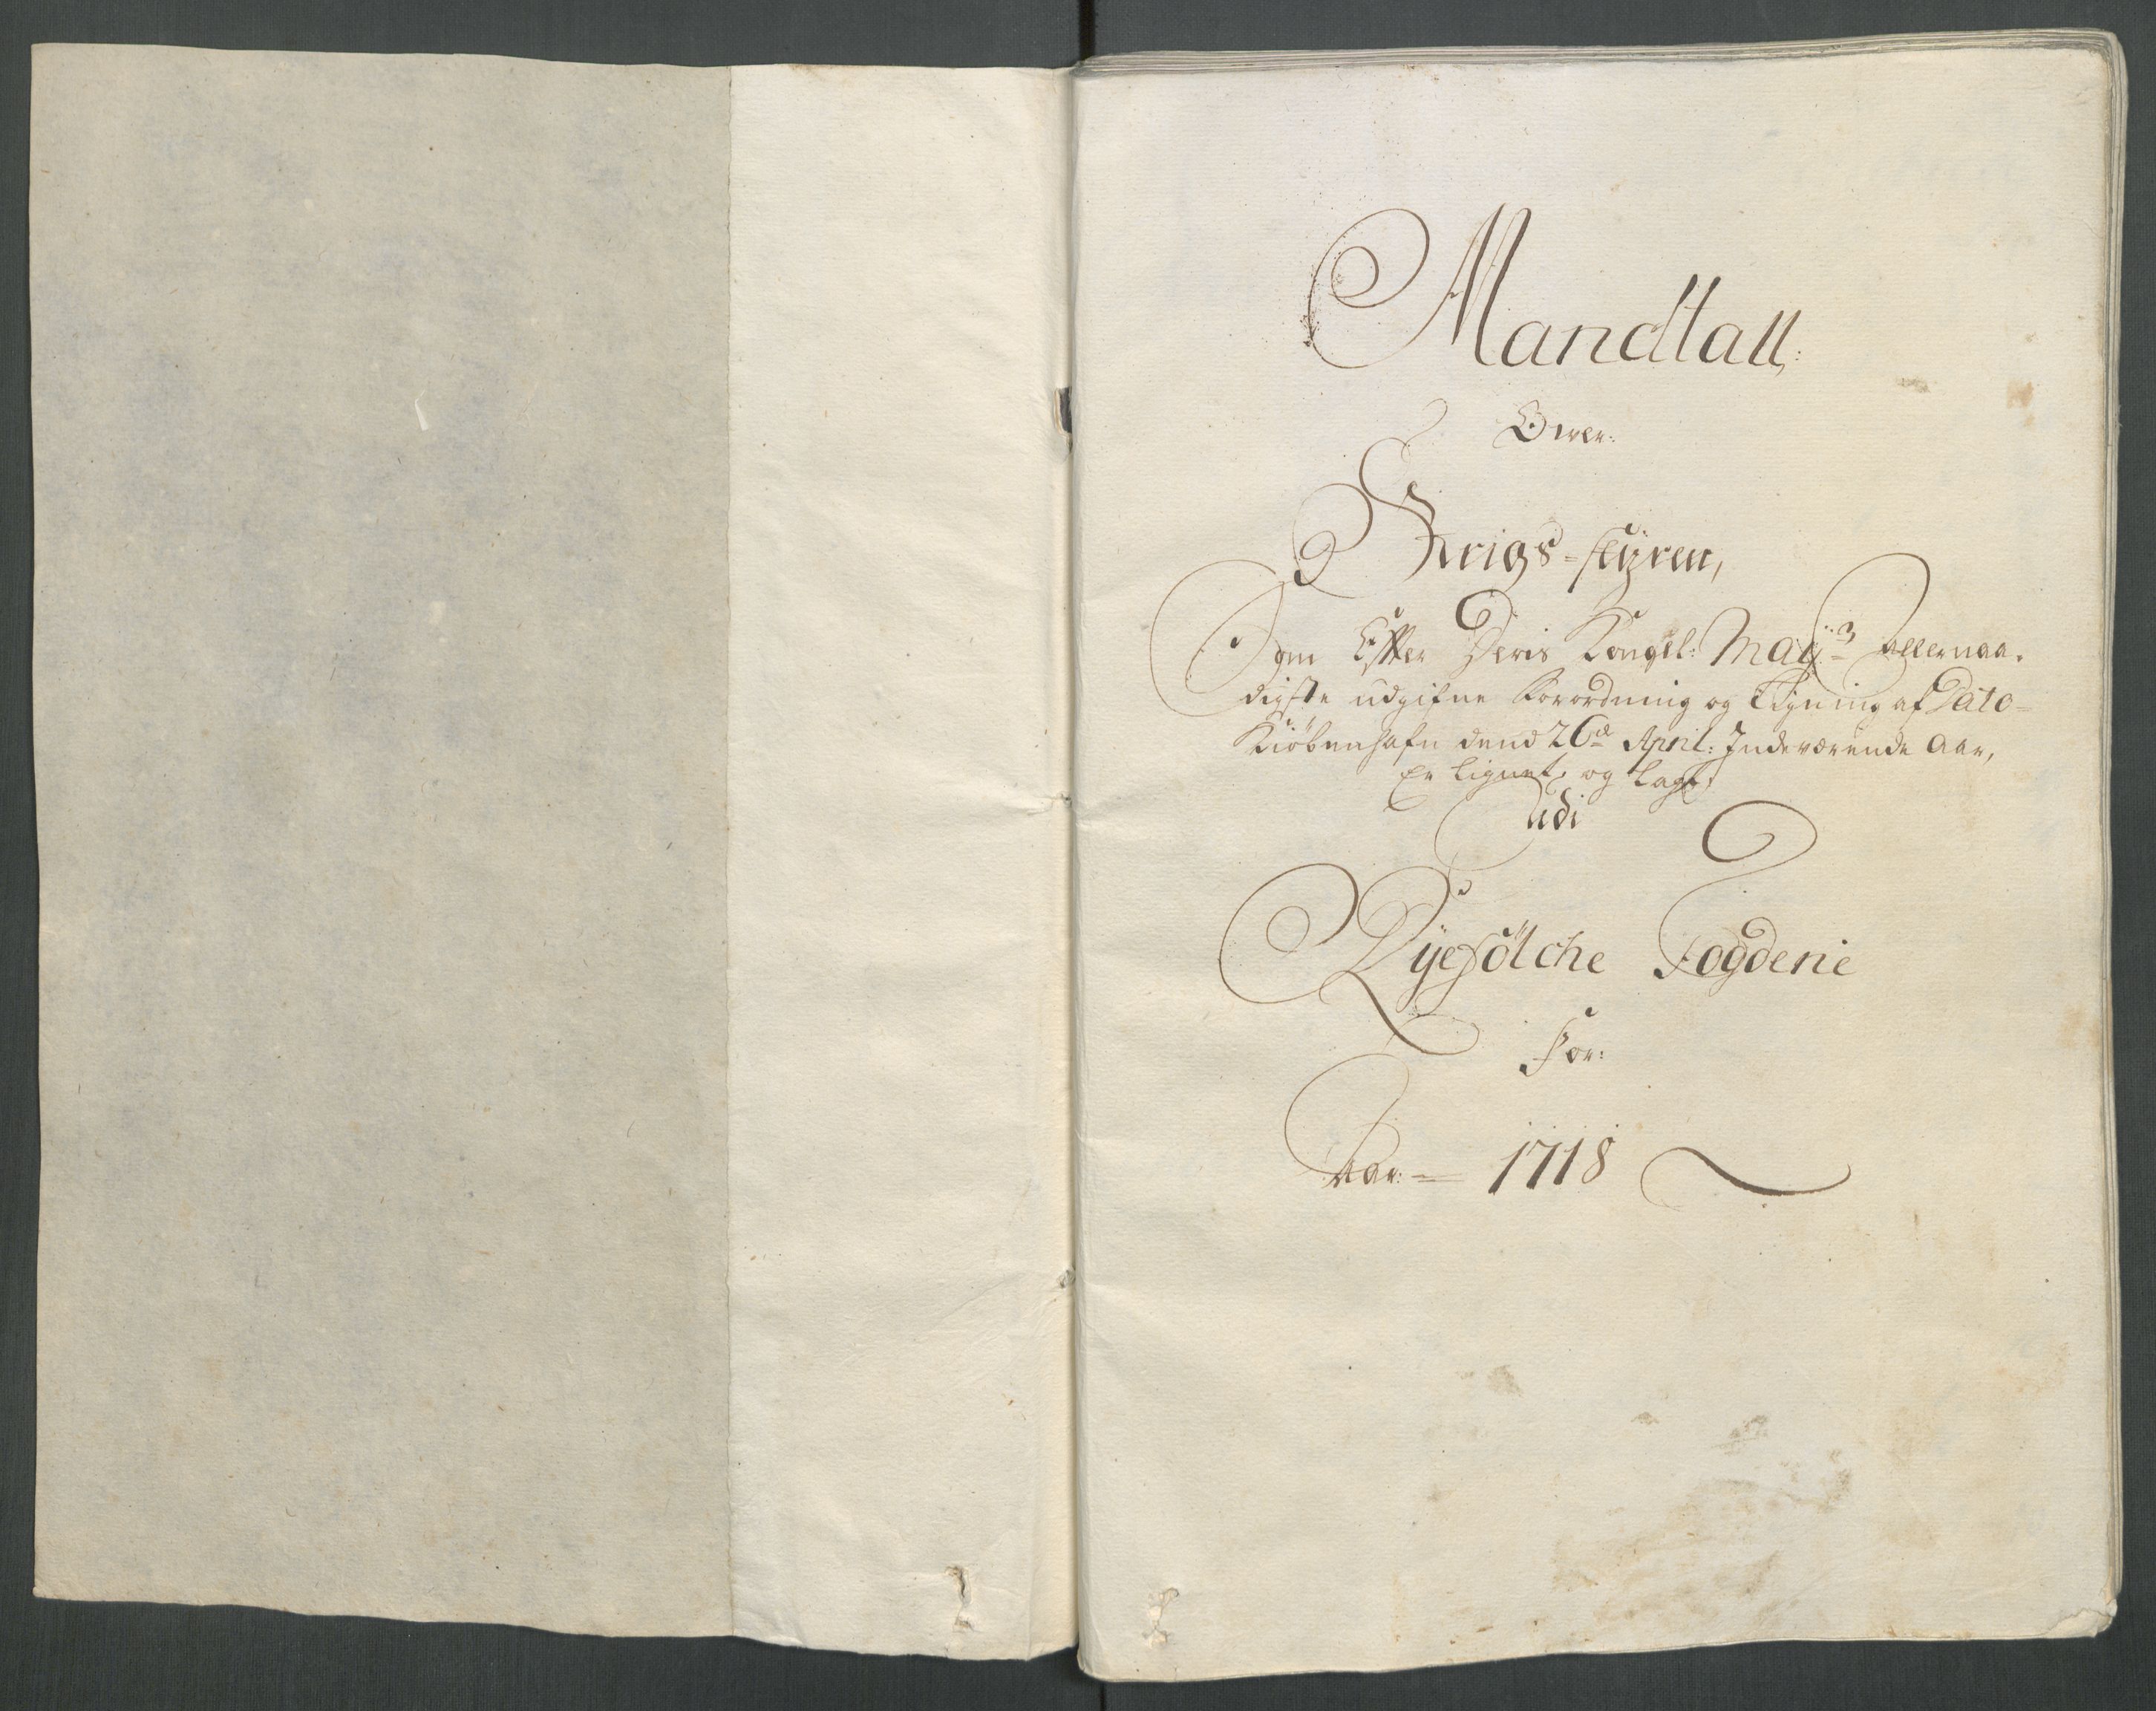 Mandtall:
Over:
Krigs-styren,
Som Effter Deris Kongel: Mayⁿˢ Allernaa-
digste udgifne Forordning og Ligning af Dato-
Kiöbenhafn dend 26de April: Indeværende Aar,
Er lignet, og lagt,
udi
Ryefölche Fogderie
For:
Aar:= 1718